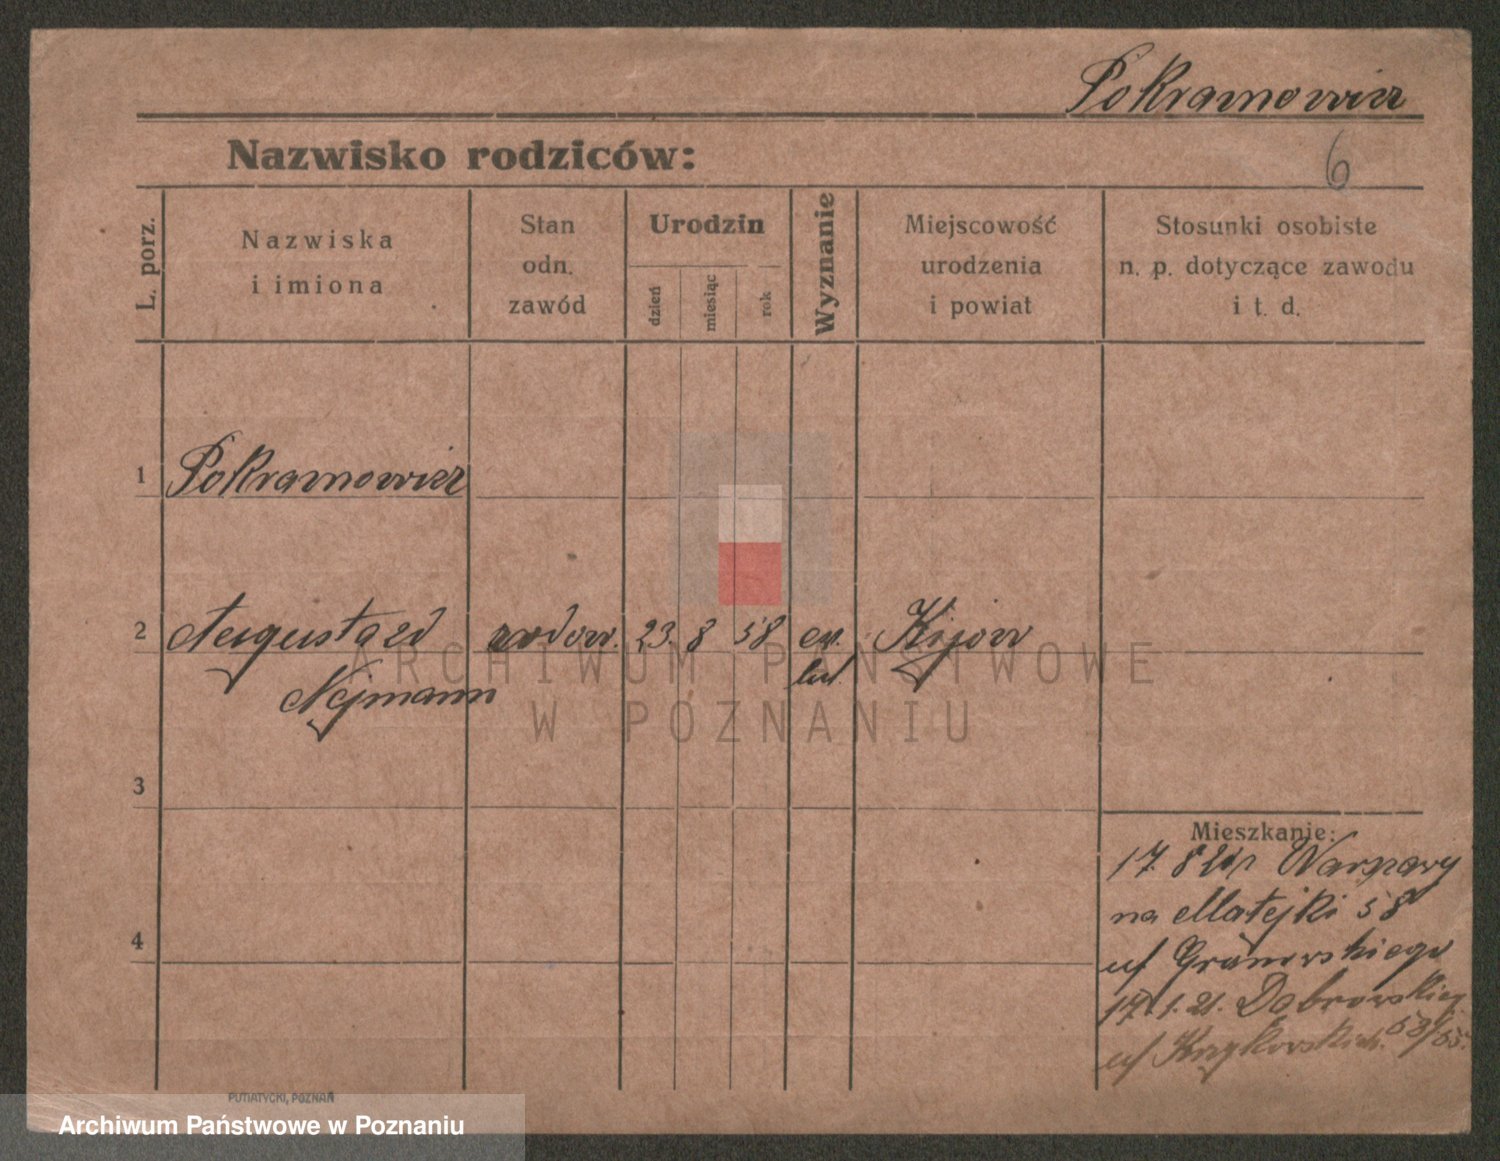 Pokramowicz
Nazwisko rodziców:
6
L. porz.
Nazwiska
i imiona
Stan
odn.
zawód
Urodzin
dzień
miesiąc
rok
Wyznanie
Miejscowość
urodzenia
i powiat
Stosunki osobiste
n. p. dotyczące zawodu
i t. d.
1 Pokramowicz
2 Augusta zd wdow. 23. 8 58 ew. Kijow
Nejmann lut.
3
Mieszkanie:
17. 8 Warszawy
na Matejki 58
4
u/ Granowskiego
17. 1. 21. Dąbrowskieg
u/ 53/55.
PUTIATYCKI, POZNAŃ
ARCHIWUM PAŃSTWOWE
W POZNANIU
Archiwum Państwowe w Poznaniu